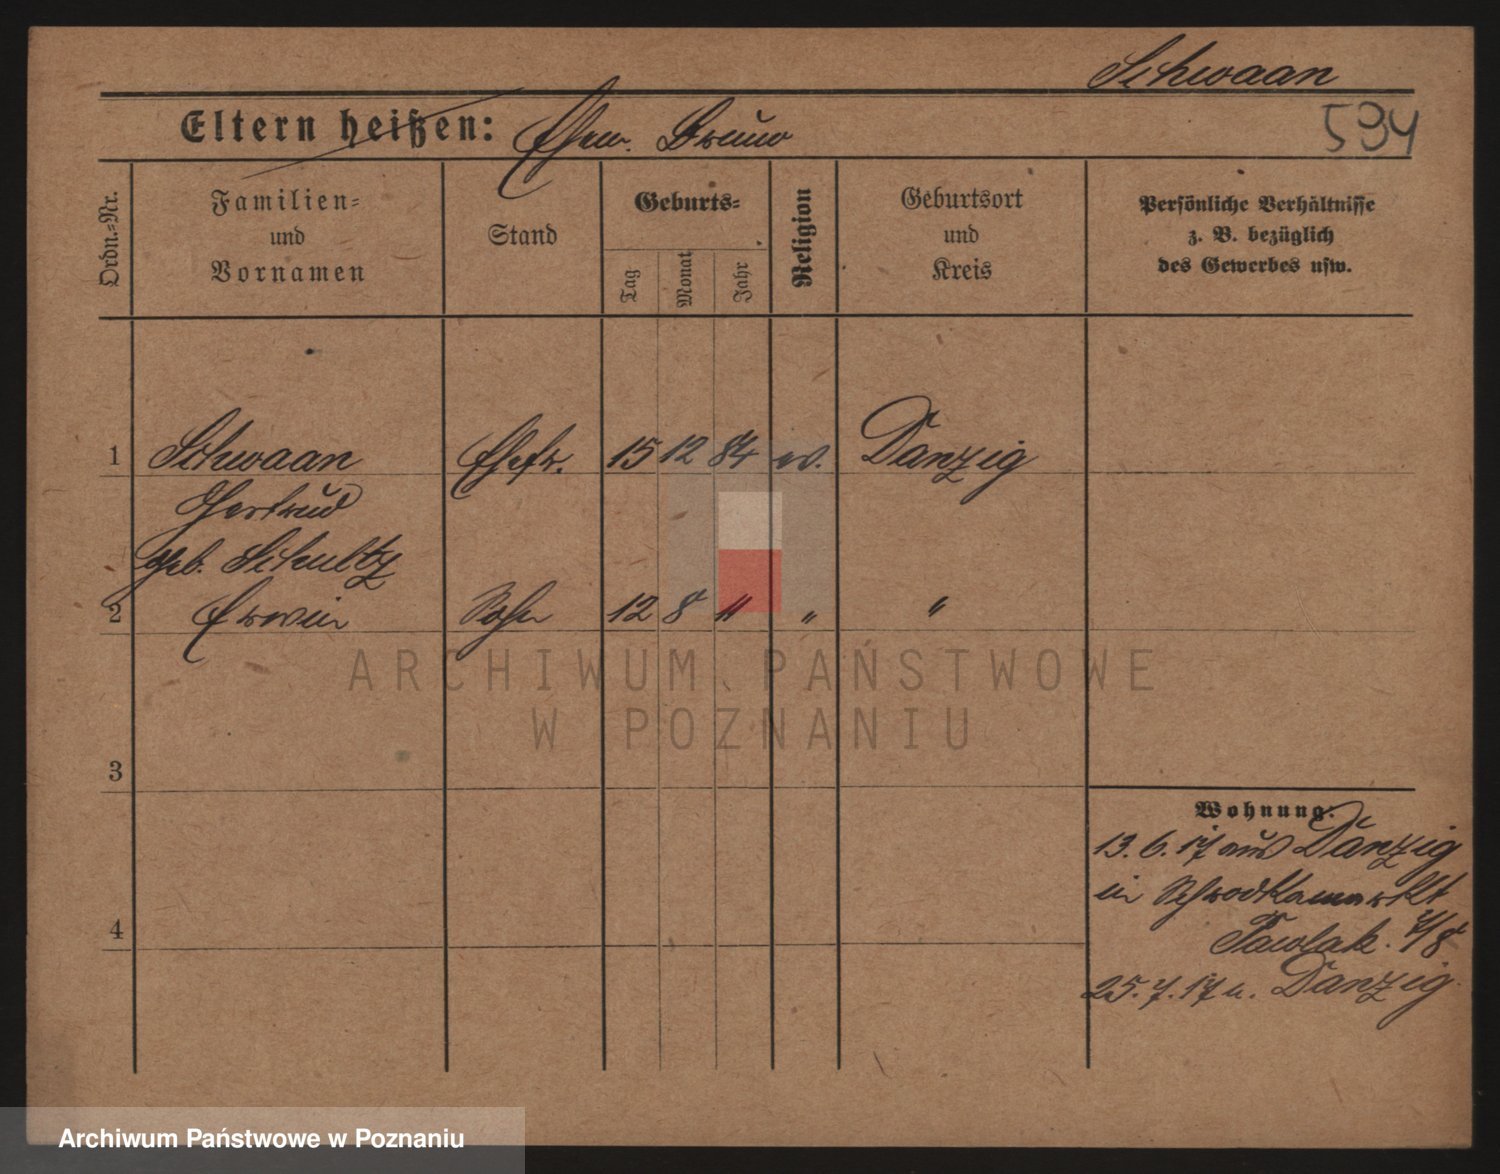 Schwaan
Eltern heißen: Ehem. Bruno
594
Ordn.-Nr.
Familien-
und
Vornamen
Stand
Geburts-
Tag
Monat
Jahr
Religion
Geburtsort
und
Kreis
Persönliche Verhältnisse
z. B. bezüglich
des Gewerbes usw.
1 Schwaan Ehefr. 15 12 84 ev. Danzig
Gertrud
geb. Schultz
2 Erwin Sohn 12 8 11 " "
ARCHIWUM PAŃSTWOWE
W POZNANIU
3
4
Wohnung:
13. 6. 17 aus Danzig
in Schrodkamarkt
7/8
25. 7. 17 n. Danzig.
Archiwum Państwowe w Poznaniu